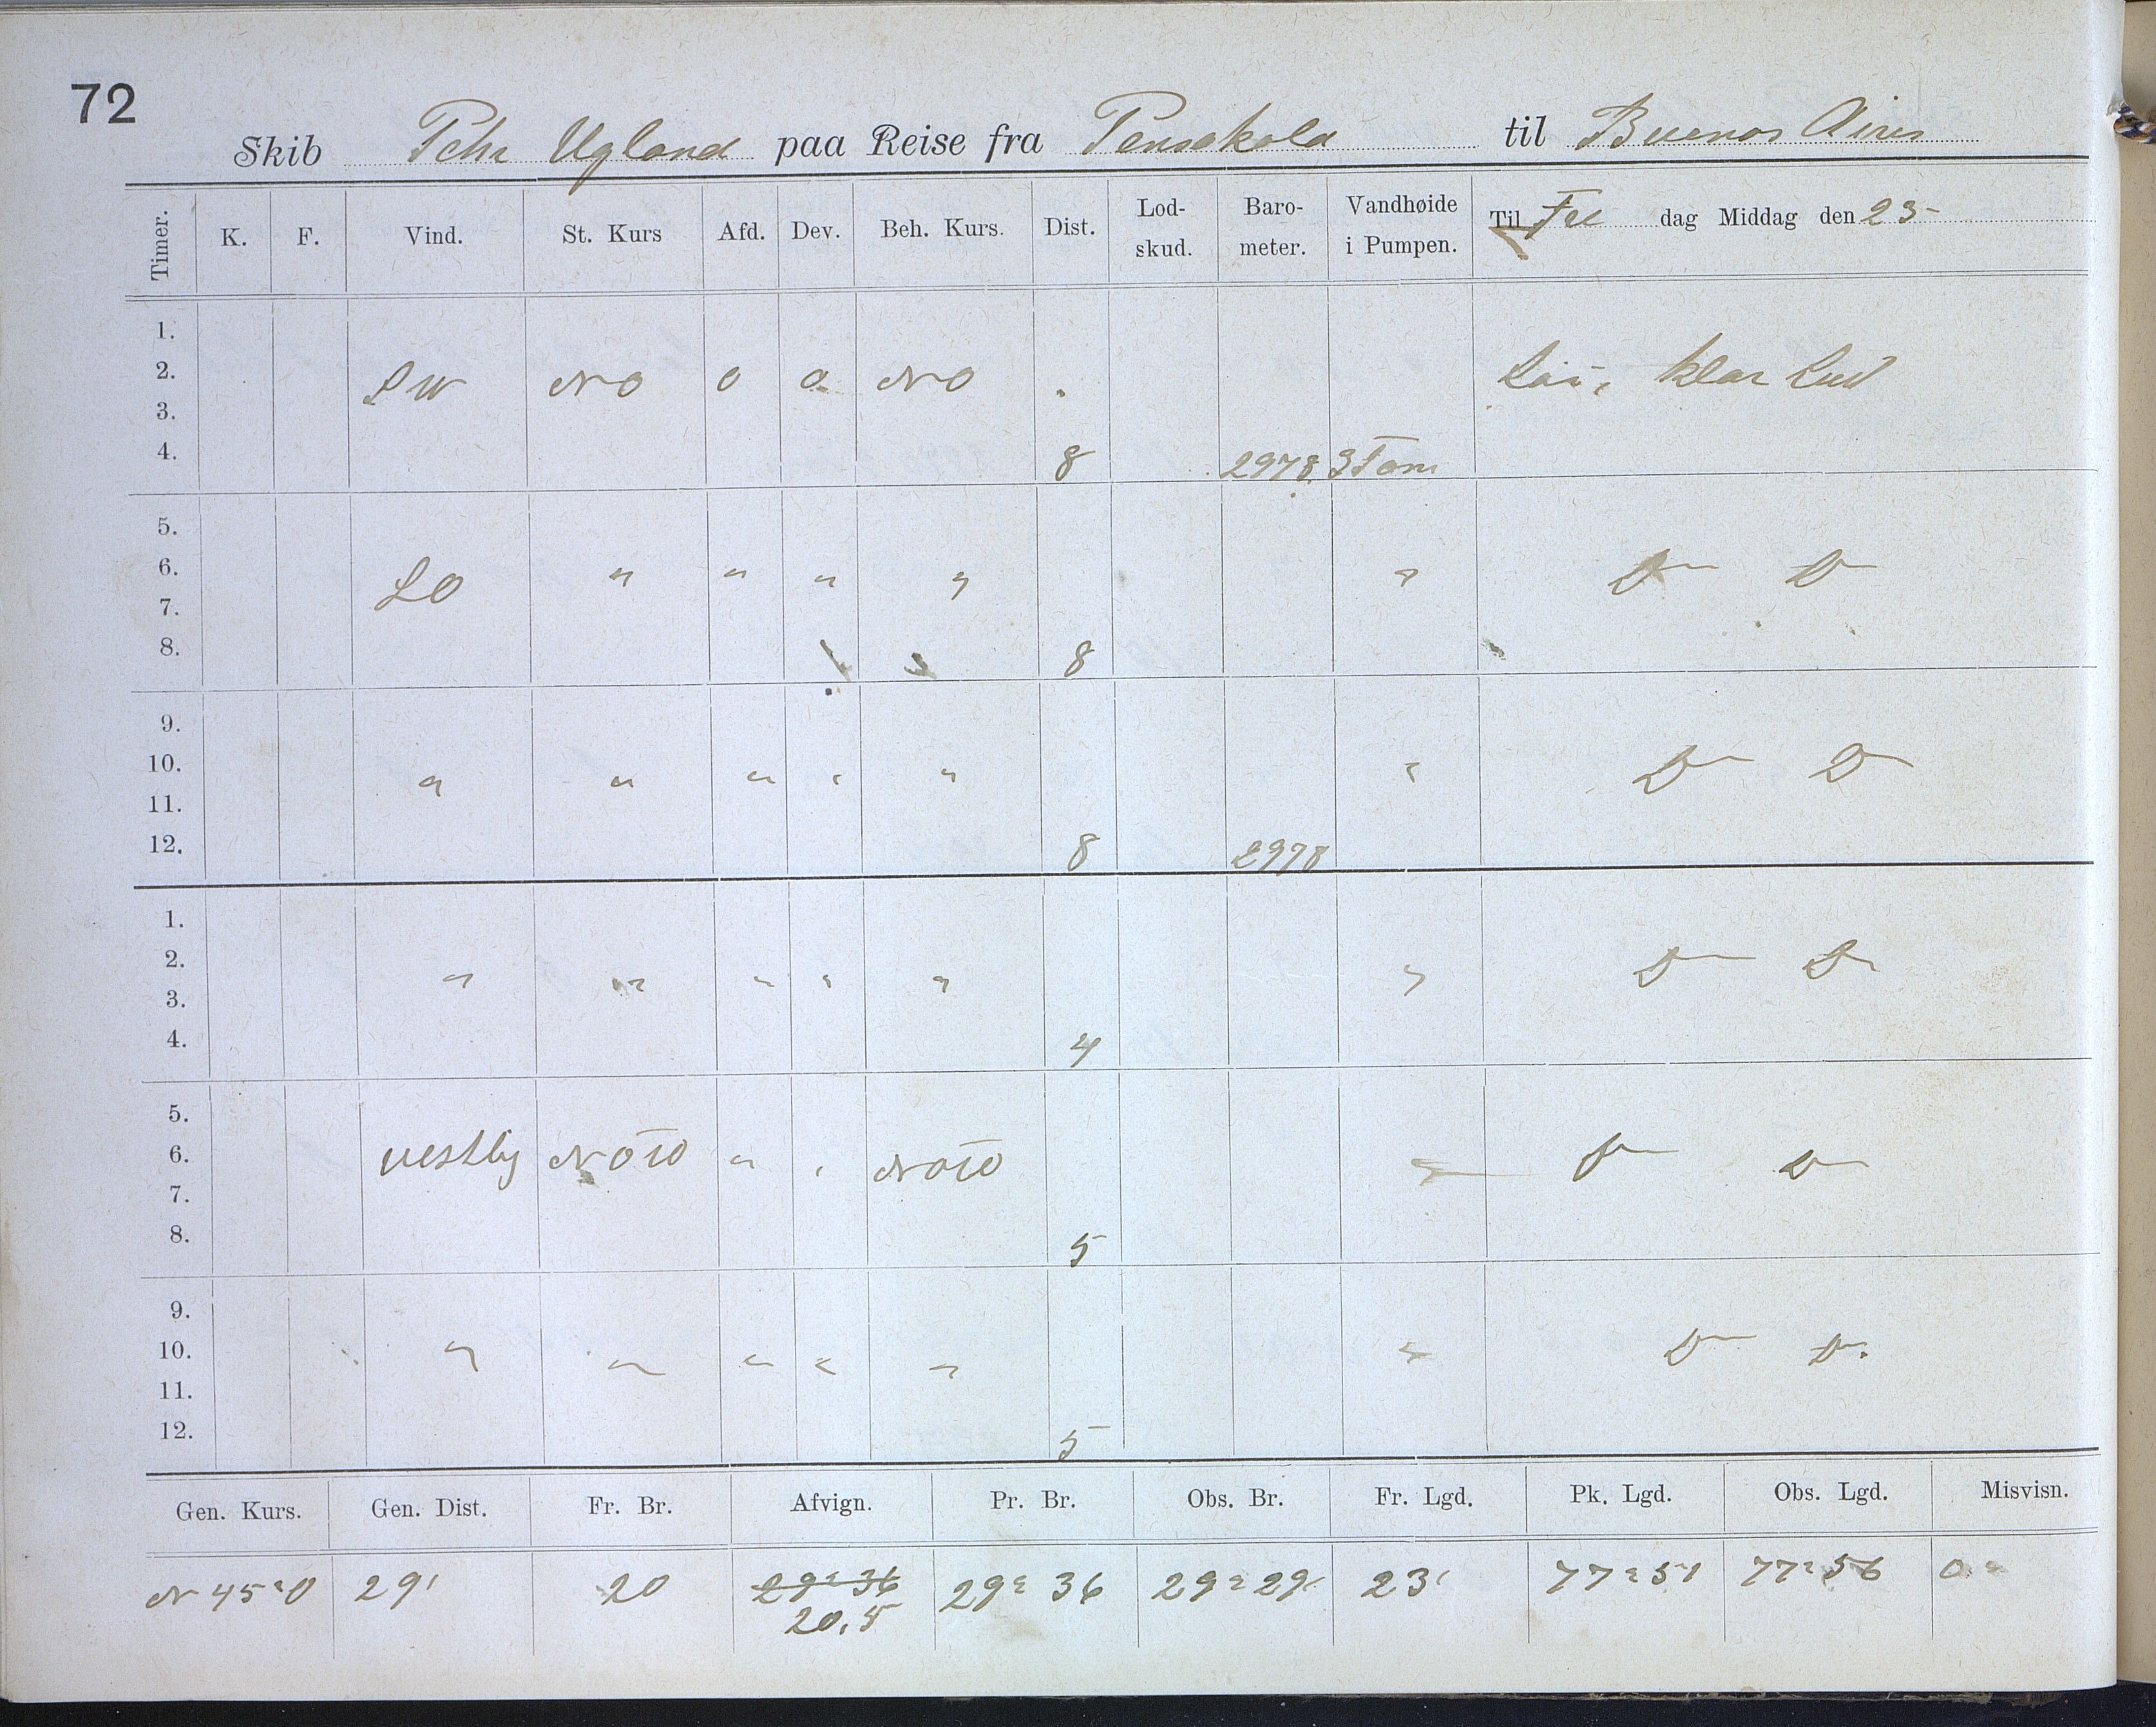 72
Skib Pehr Ugland paa Reise fra Pensakola til Buenos Aires
Timer. K. F. Vind. St. Kurs Afd. Dev. Beh. Kurs. Dist. Lod-skud. Baro-meter. Vandhøide i Pumpen. Til Fre dag Middag den 23
1.
2. SW NO 0 0 NO klar Luft
3.
4. 8 2978 9 Tom
5.
6. SO " " " " " D D
7.
8. 8
9.
10. " " " " " " D D
11.
12. 8 2978
1.
2. " " " " " " D D
3.
4. 4
5.
6. vestlig NOtO " " NOtO " D D
7.
8. 5
9.
10. " " " " " " D D.
11.
12. 5
Gen. Kurs. Gen. Dist. Fr. Br. Afvign. Pr. Br. Obs. Br. Fr. Lgd. Pk. Lgd. Obs. Lgd. Misvisn.
N 45° O 29' 20 29° 36 29° 36 29° 29 23' 77° 51 77° 56 0°
20,5